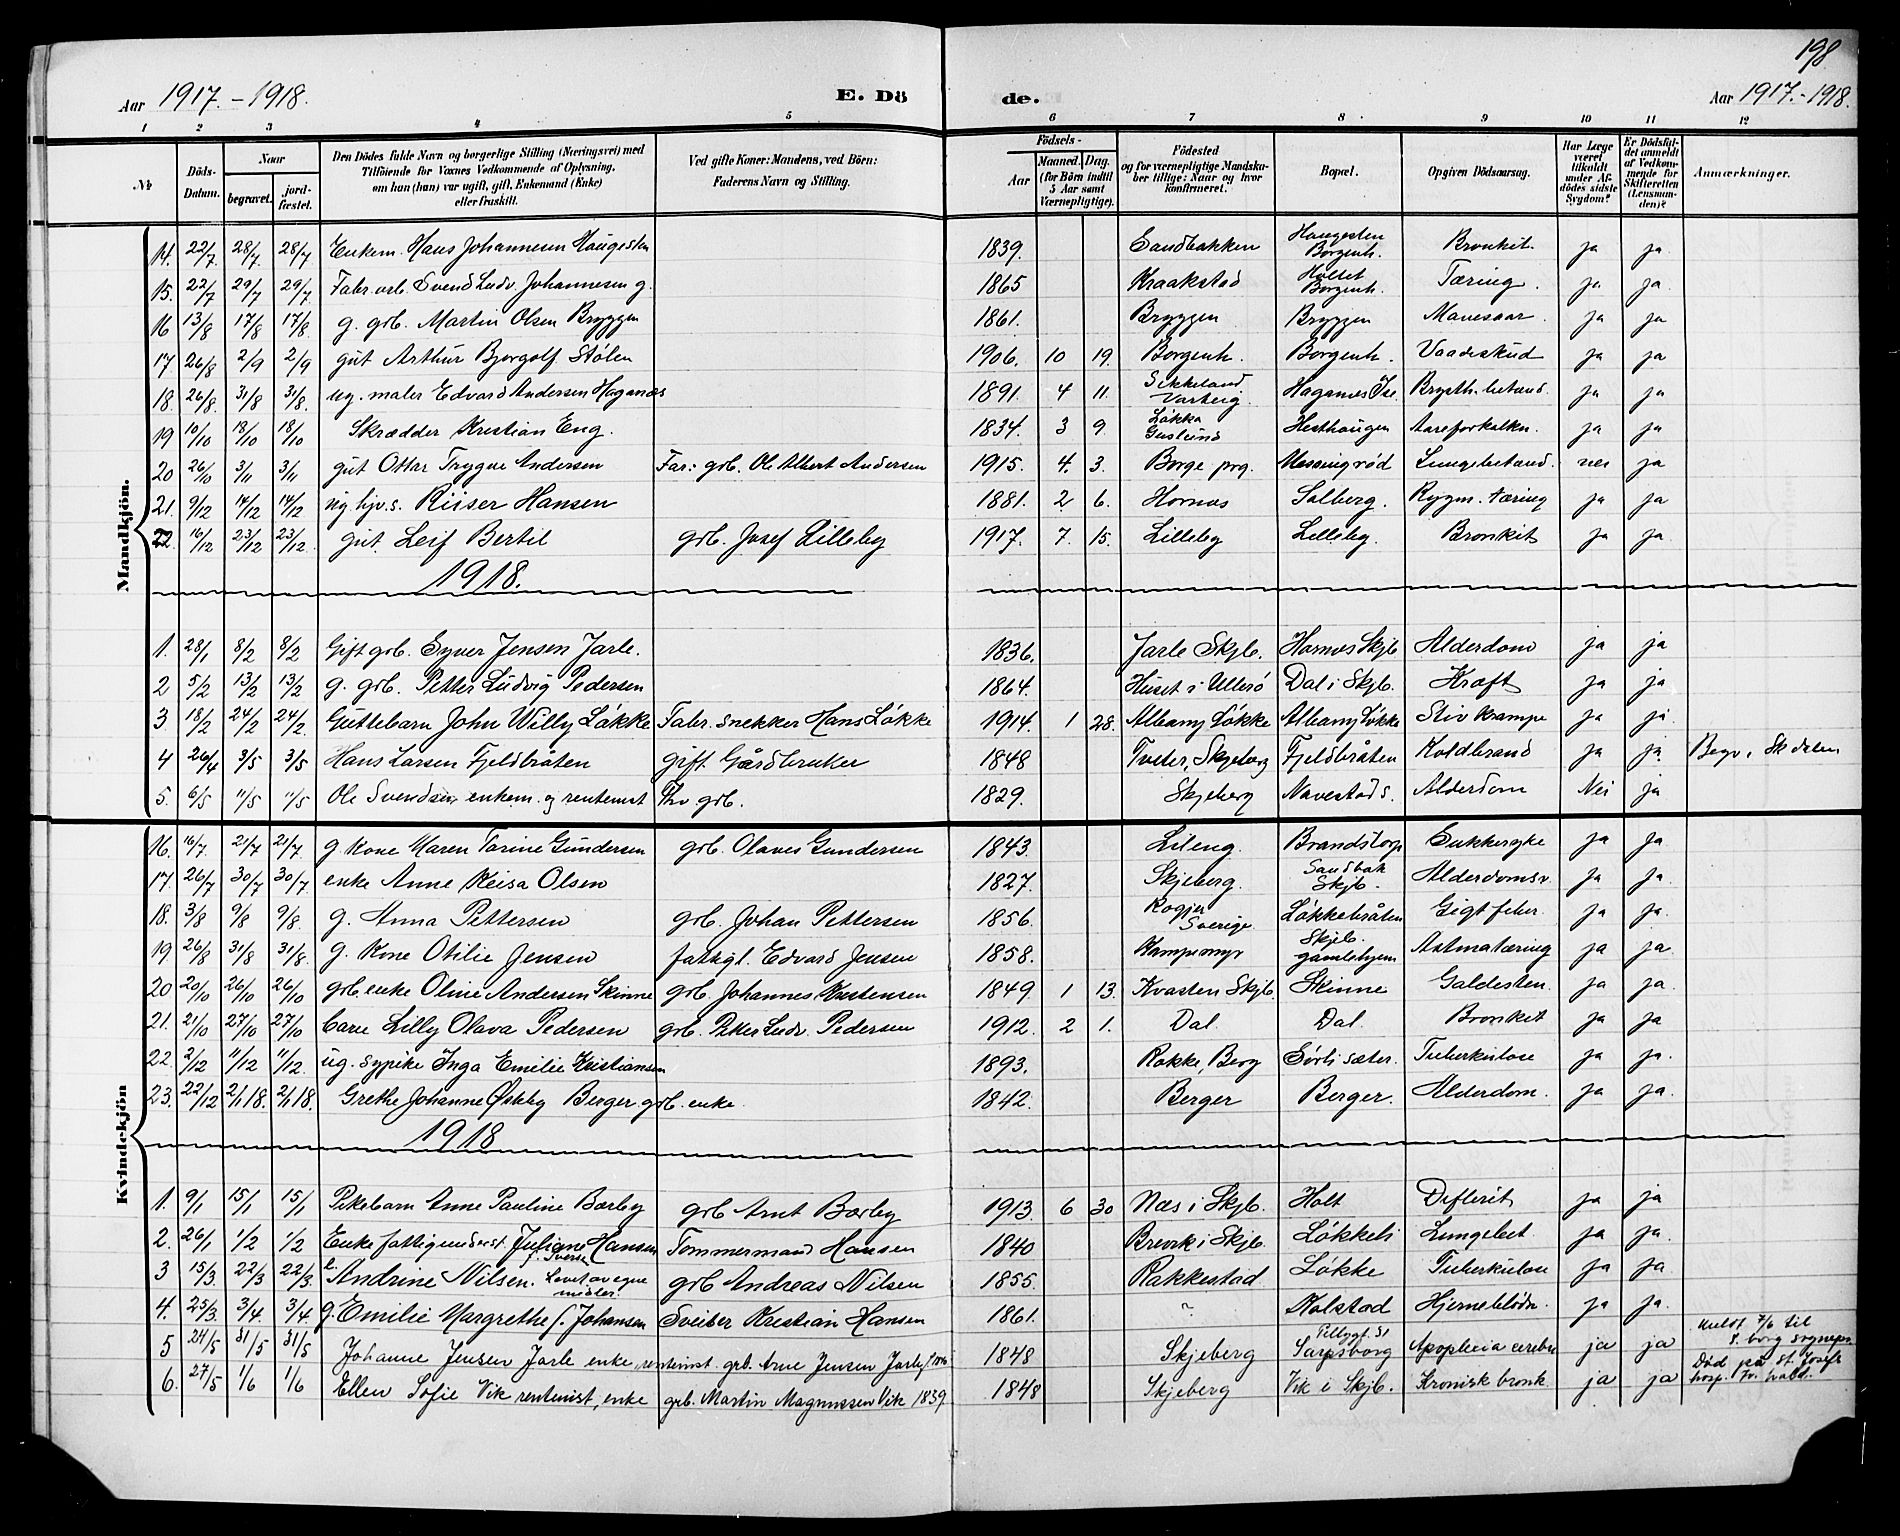 198
Aar 1917.-1918. E. Dö de. Aar 1917.-1918.
1 2 3 4 5 6 7 8 9 10 11 12
№ Döds-Datum. Naar begravet. jordfæstet. Den Dödes fulde Navn og borgerlige Stilling (Næringsvei) med Tilföiende for Voxnes Vedkommende af Oplysning, om hun (han) var ugift, gift, Enkemand (Enke) eller fraskilt. Ved gifte Koner: Mandens, ved Börn: Faderens Navn og Stilling. Födsels- Aar Maaned. Dag. (for Börn indtil 5 Aar samt Værnepligtige). Födested og for værnepligtige Mandskaber tillige: Naar og hvor konfirmeret. Bopæl. Opgiven Dödsaarsag. Har Læge været tilkaldt under Afdödes sidste Sygdom? Er Dödsfaldet anmeldt af Vedkommende for Skifteretten (Lensmanden)? Anmærkninger.
Mandkjön.
14. 22/7 28/7. 28/7 Enkem. Hans Johannesen Haugesten 1839. Sandbakken Haugesten Borgenh. Bronkit. ja ja.
15. 22/7 29/7 29/7. Fabr. arb. Svend Ludv. Johannesen g. 1865 Kraakstad Holtet Borgenh. Tæring. ja ja.
16 13/8 17/8 17/8. g. grb. Martin Olsen Bryggen 1861. Bryggen Bryggen Mavesaar. ja ja
17. 26/8 2/9 2/9 gut Arthur Bjorgolf Stølen 1906. 10 19. Borgenh. Borgenh. Vaadeskud ja ja
18. 26/8. 31/8 31/8. ug. maler Edvard Andersen Haganæs 1891. 4 11. Sikkeland Varteig. Haganæs Ise. Brysth. betænd. ja ja
19 10/10 18/10 18/10 Skrædder Kristian Eng. 1834. 3 9. Løkka Gaslund Hesthaugen Aareforkalkn. ja ja
20 26/10 3/11 3/11 gut Ottar Trygve Andersen Far: grb. Ole Albert Andersen 1915. 4. 3. Borge prg. Messingrød Lungebetænd. nei ja
21. 9/12 14/12 14/12 ug. hjv. s. Riiser Hansen 1881. 2 6. Hornæs Solberg. Rygm. tæring ja ja
22. 16/12 23/12 23/12. gut. Leif Bertil grb. Josef Lilleby 1917. 7. 15. Lilleby Lilleby. Bronkit ja ja.
1918.
1. 28/1 8/2 8/2 Gift grb. Syver Jensen Jarle. 1836. Jarle Skjb. Hornes Skjb Alderdom ja ja
2 5/2 13/2 13/2 g. grb. Petter Ludvig Pedersen 1864. Huset i Ullerø Dal i Skjb. Kræft ja ja
3 18/2 24/2 24/2. Guttebarn John Willy Løkke Fabr. snekker Hans Løkke 1914. 1 28. Albamy Løkke Albamy Løkke Stivkrampe ja ja.
4 26/4 3/5 3/5 Hans Larsen Fjeldbråten gift Gårdbruker 1848 Tveter, Skjeberg Fjeldbråten Koldbrand ja ja. Begr. i Sk.dalen
5. 6/5 11/5 11/5 Ole Svendsen, enkem. og rentenist grb. 1829. Skjeberg Navestad s. Alderdom Nei ja
Kvindekjön
16. 16/7 21/7 21/7. g. Kone Maren Torine Gundersen grb. Olaves Gundersen 1843. Lileng. Brandstorp Sukkersyke ja ja.
17. 26/7 30/7 30/7. enke Anne Keisa Olsen 1827. Skjeberg. Sandbak Skjb. Alderdomsv. ja ja.
18. 3/8 9/8 9/8. g. Anna Pettersen grb. Johan Pettersen 1856. Sverige Løkkebråten Gigtfeber. ja ja.
19 26/8 31/8 31/8. g. Kone Otilie Jensen fattigl. Edvard Jensen 1858. Kampemyr Skjb. gamlehjem Astmatæring ja ja.
20 20/10 26/10 26/10 grb. enke Oline Andersen Skinne grb. Johannes Kristensen 1849. 1 13. Kvasten Skjb. Skinne Galdesten. ja ja
21. 21/10 27/10 27/10 barn Lilly Olava Pedersen grb. Peter Ludv. Pedersen 1912. 2 1. Dal. Dal. Bronkit ja ja
22. 2/12 11/12 11/12. ug. sypike Inga Emilie Kristiansen 1893. Rokke, Berg Sørli sæter. Tuberkulose ja ja.
23. 22/12 2/1 18. 2/1 18. Grethe Johanne Østby Berger grb. enke. 1842. Berger Berger. Alderdom. ja ja.
1918
1. 9/1 15/1 15/1 Pikebarn Anne Pauline Bærby grb Arnt Bærby 1913. 6 30 Næs i Skjb. Holt Difterit ja ja
2. 26/1 1/2 1/2 Enke fattigunderst. Juliane Hansen f. Iversen Tømmermand Hansen 1840 Brevik i Skjb. Løkkeli Lungebet. ja ja.
3 15/3. 22/3 22/3 E. Andrine Nilsen. Levet av egne midler. grb Andreas Nilsen 1855. Rakkestad Løkke Tuberkulose ja ja.
4. 25/3. 3/4. 3/4. g. Emilie Margrethe f. Johansen Sveiser Kristian Hansen 1861. " Kolstad Hjerneblødn. ja ja.
5 24/5 31/5 31/5 Johanne Jensen Jarle enke, rentenist. grb. Arne Jensen Jarle 1848 Skjeberg Sarpsborg Apoplexia cerebri ja ja Meldt 7/6 til S.borg sognepr.
6. 27/5 1/6 1/6 Ellen Sofie Vik rentenist, enke grb. Martin Magnussen Vik 1839. 1848 Skjeberg Vik i Skjb. Kronisk bronk. ja ja Død på St. Josefs hosp. Fr. hald.